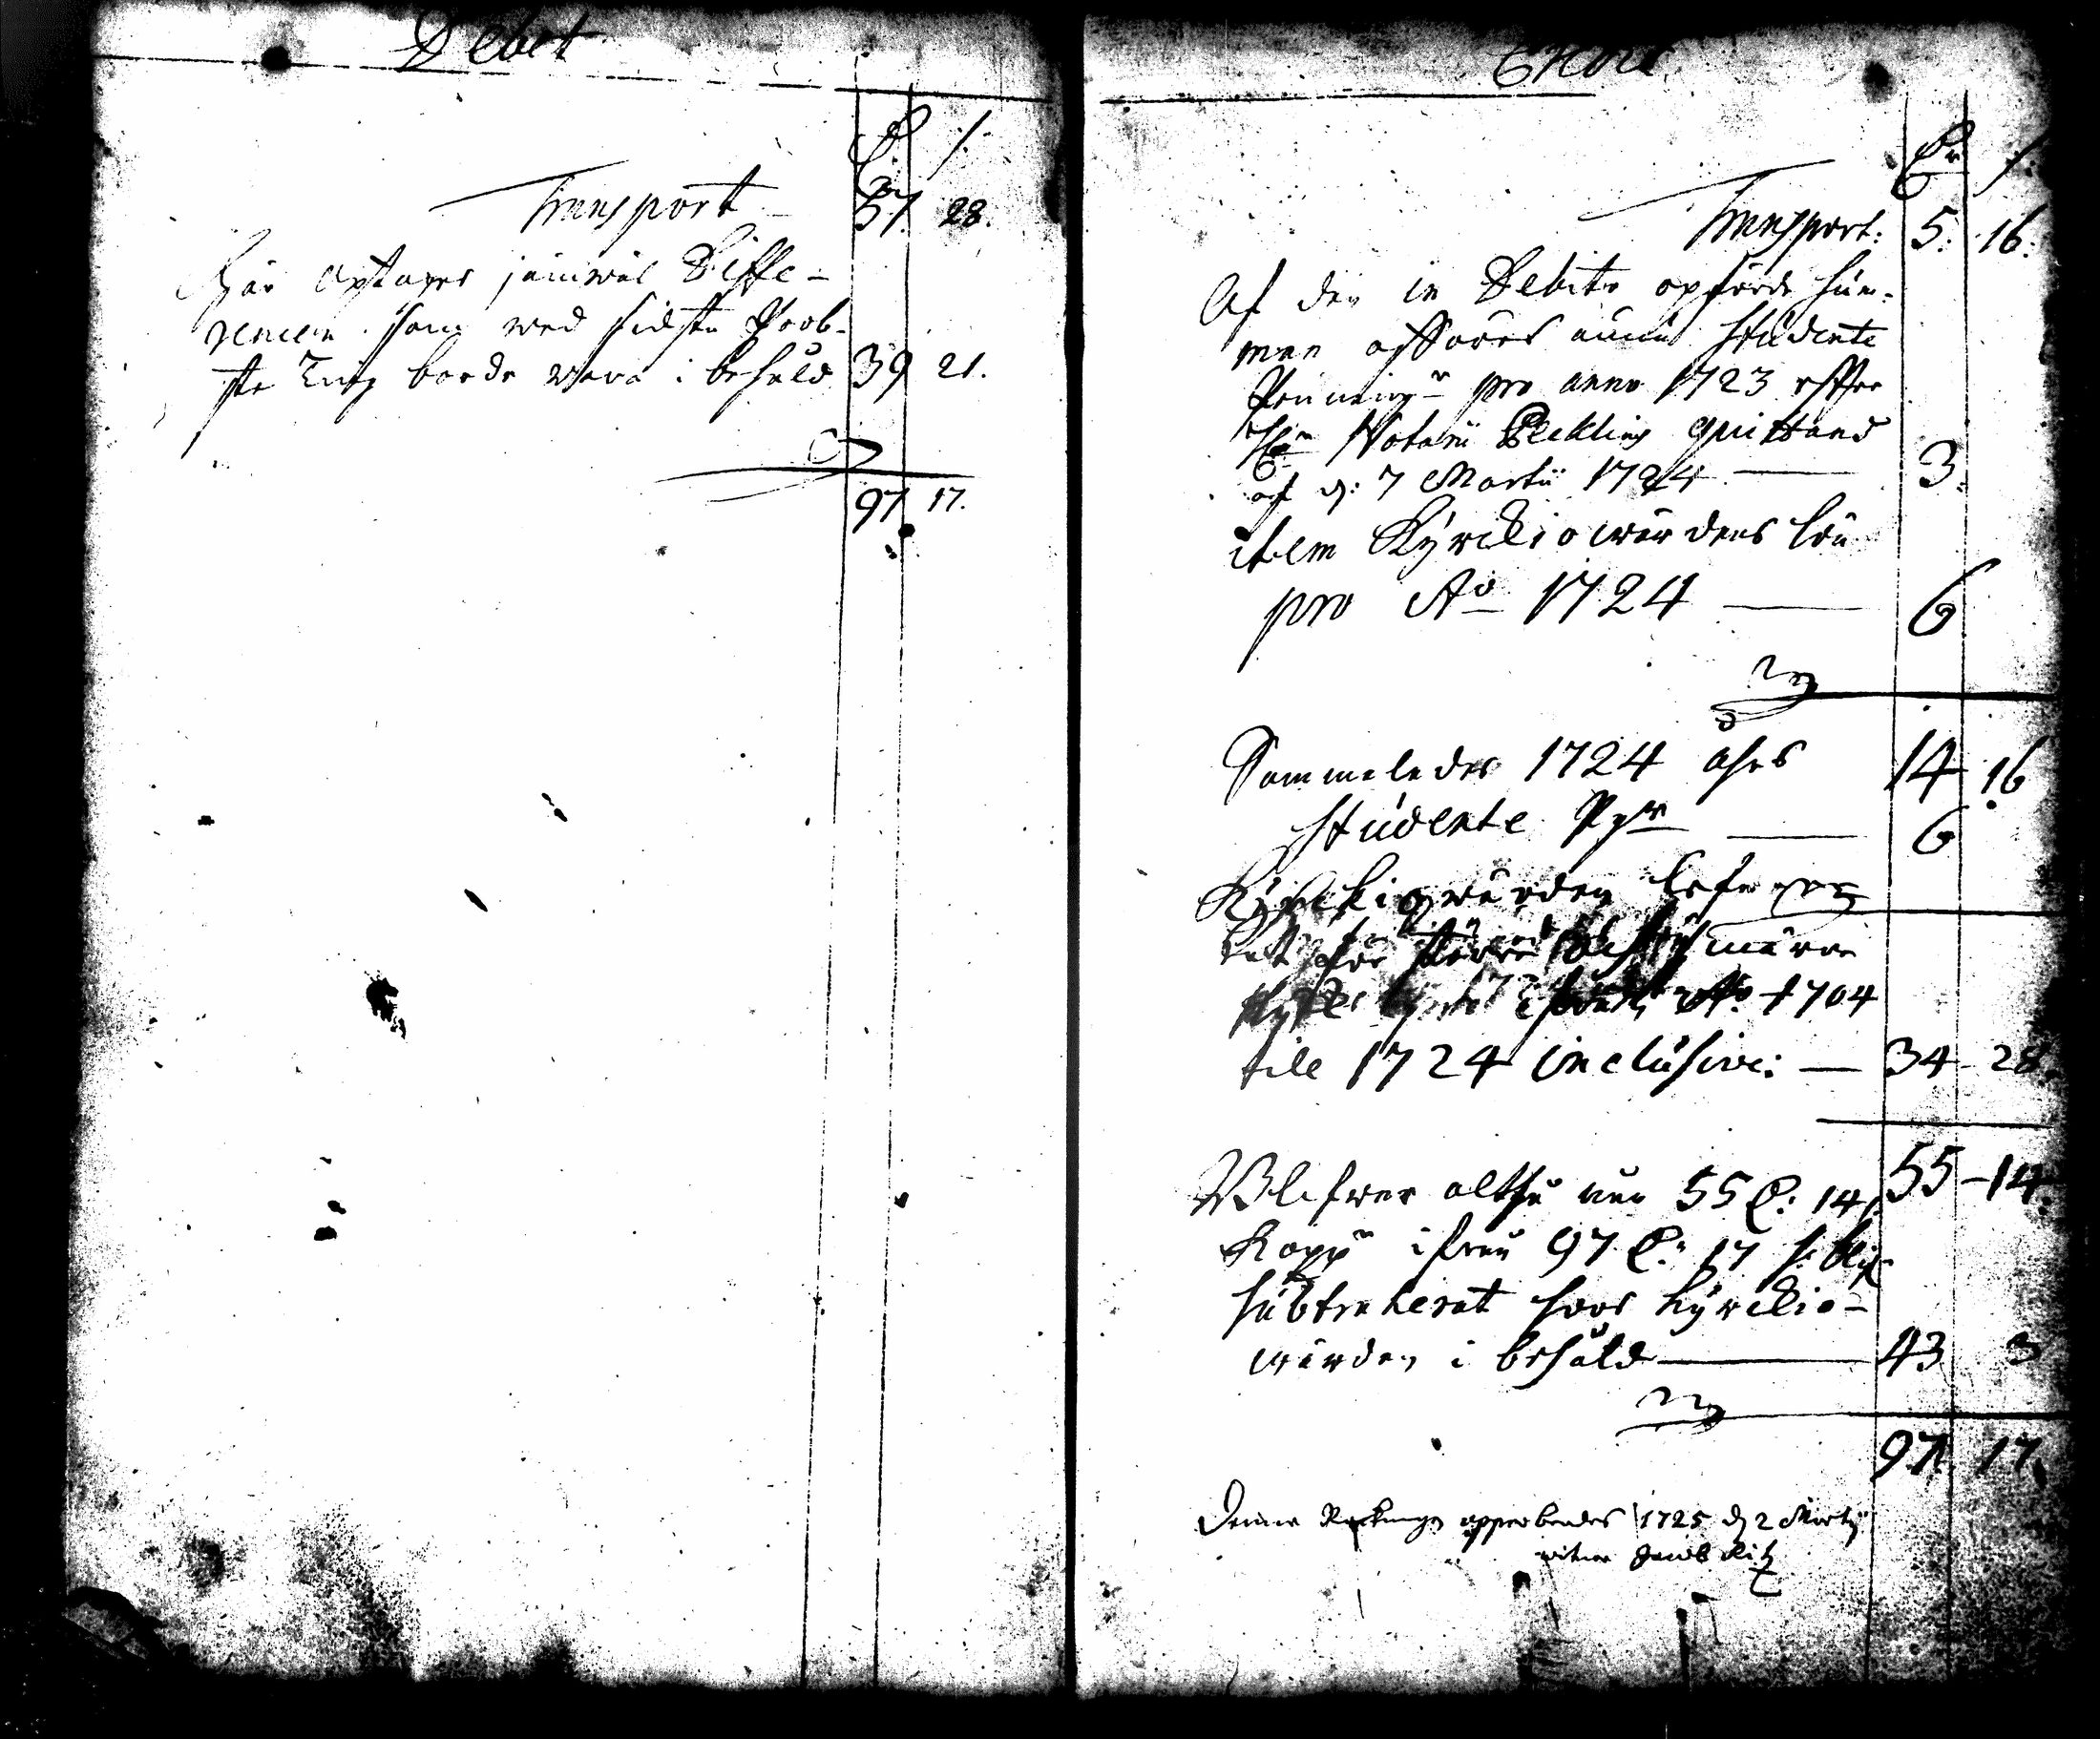 Debet
D. /.
Transport 57. 28.
Här optages jämwäl Diffe-
rencen som wed sidste Prob-
ste Ting borde wara i behåld 39 21.
97 17.
Credit
Dr /.
Transport: 5: 16.
Af den in Debito opförde sum-
man afföres ännu studente
Penning:r pro anno 1723 efter
H:r Notarii Becklins quittens
af d: 7 Martii 1724 — 3.
item Kyrckiowärdens lön
pro Ao 1724 — 6
Sammeledes 1724 åhrs 14 16
studente Pgr — 6
Kyrckiowärden
för
Ao 1704
till 1724 inclusive: — 34 28.
Blifwer altså nu 55 D: 14 /. 55 - 14.
Kopp:r ifrån 97 D: 17 /:
subtraherat hoos Kyrckio-
wärden i behåld — 43 3
97. 17.
Denne Räkningh approberades 1725 d 2 Martij
witnar Jacob